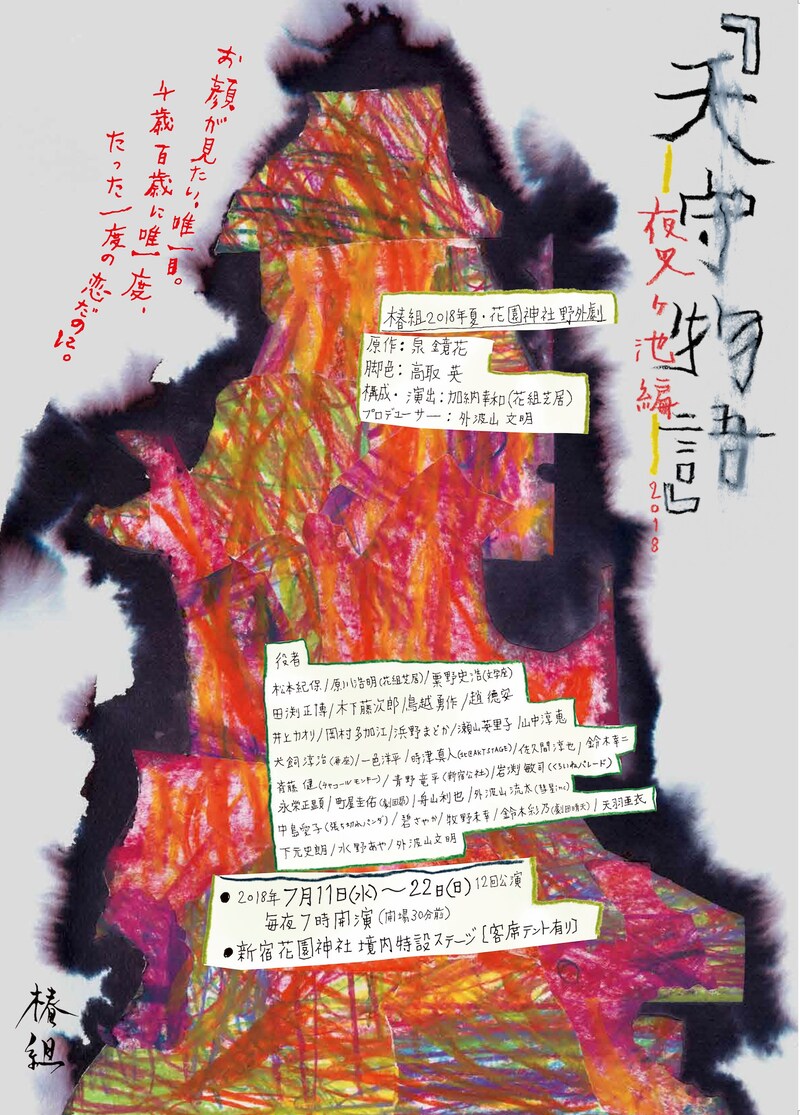 『天守物語』
─夜叉ヶ池編─2018
お顔が見たい。唯一目。
千歳百歳に唯一度、
たった一度の恋だのに。
椿組2018年夏・花園神社野外劇
原作：泉鏡花
脚色：高取 英
構成・演出：加納幸和(花組芝居)
プロデューサー：外波山文明
役者
松本紀保/原川浩明(花組芝居)/粟野史浩(文学座)
田渕正博/木下藤次郎/鳥越勇作/趙徳安
井上カオリ/岡村多加江/浜野まどか/瀬山英里子/山中淳恵
犬飼淳治(扉座)/一邑洋平/時津真人/佐久間淳也/鈴木幸二
斉藤健(チャコールモンキー)/青野竜平(新宿公社)/岩渕敏司(くろいぬパレード)
永栄正顕/町屋圭佑(劇団昴)/舟山利也/外波山流太(彗星inc)
中島愛子(張ち切れパンダ)/碧さやか/牧野未幸/鈴木彩乃(劇団晴天)/天羽亜衣
下元史朗/水野あや/外波山文明
●2018年7月11日(水)～22日(日)12回公演
毎夜7時開演(開場30分前)
●新宿花園神社境内特設ステージ[客席テント有り]
椿組